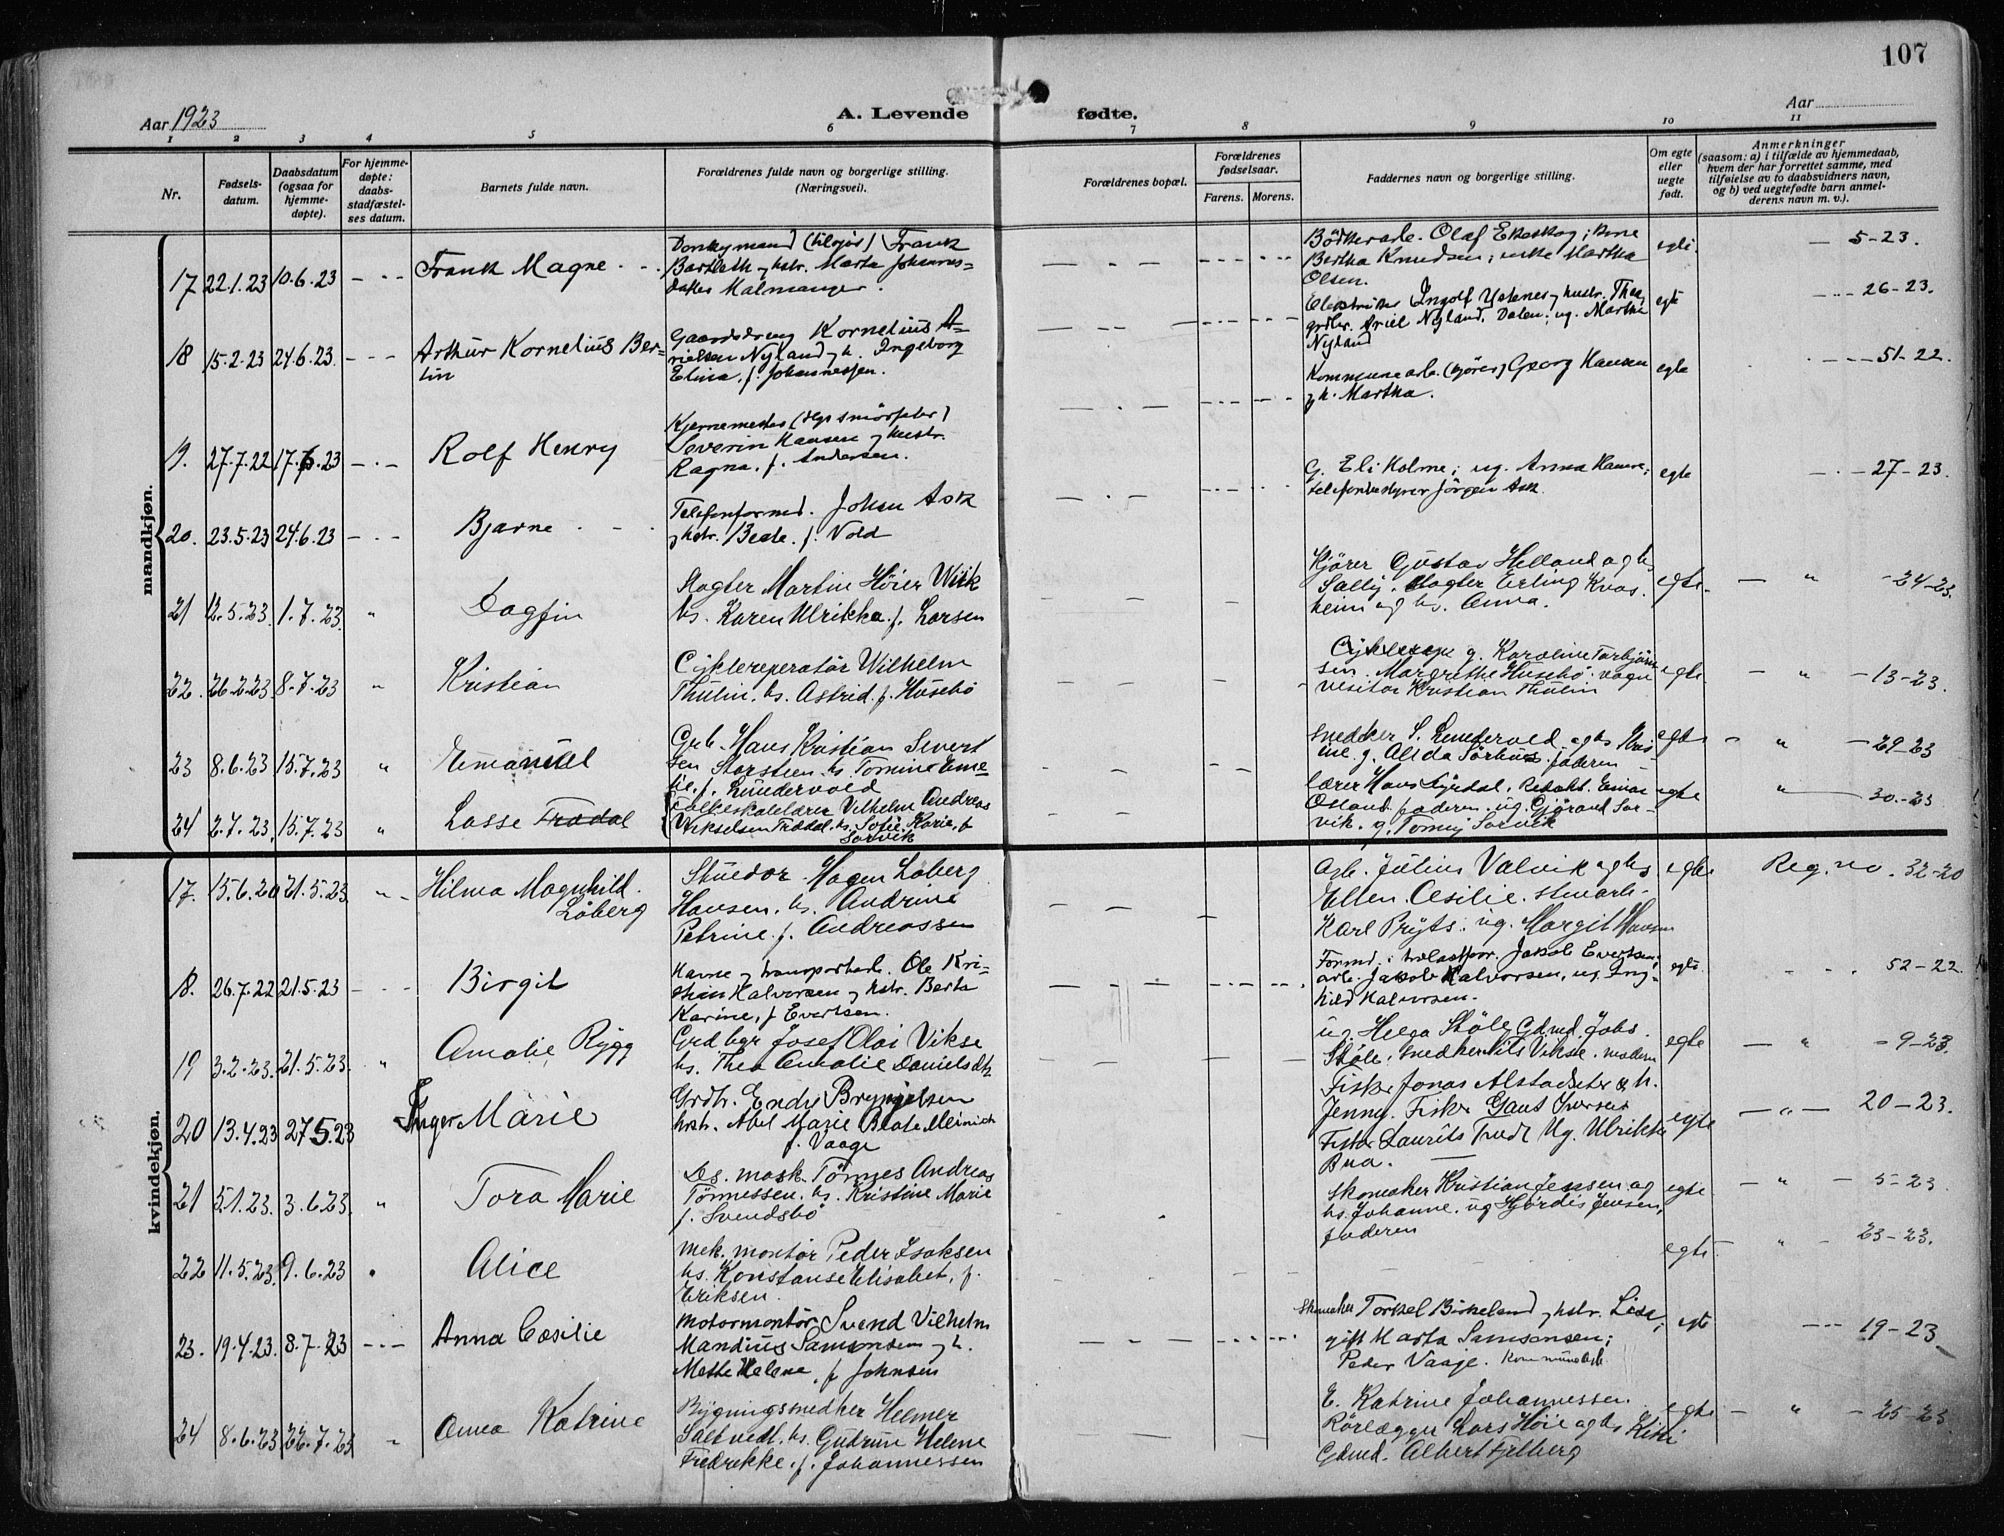 107
Aar 1923
A. Levende fødte.
Aar
1 2 3 4 5 6 7 8 9 10 11
Nr.
Fødsels-
datum.
Daabsdatum
(ogsaa for
hjemme-
døpte).
For hjemme-
døpte:
daabs-
stadfæstel-
ses datum.
Barnets fulde navn.
Forældrenes fulde navn og borgerlige stilling.
(Næringsvei).
Forældrenes bopæl.
Forældrenes
fødselsaar.
Farens. Morens.
Faddernes navn og borgerlige stilling.
Om egte
eller
uegte
født.
Anmerkninger
(saasom: a) i tilfælde av hjemmedaab,
hvem der har forrettet samme, med
tilføielse av to daabsvidners navn,
og b) ved uegtefødte barn anmel-
derens navn m. v.).
mandkjøn.
17 22.1.23 10.6.23 Frank Magne
Donkymand (tilsjøs) Frank
Bartleth og hstr. Marta Johannes-
datter Malmanger.
Bødkerarb. Olaf Ekeskog;
Bertha Knudsen; enke Martha
Olsen.
egte 5-23.
18 15.2.23 24.6.23 Arthur Kornelius Ber-
tin
Gaardsdreng Kornelius A-
rielsen Nyland og h. Ingeborg
Elina, f. Johannessen.
Elektriker Ingolf Ystenes og hustr. Thea,
grdbr. Ariel Nyland, Dalen; ug. Martha
Nyland
egte 26-23.
19. 27.7.22 17.6.23 Rolf Henry
Kjernemester (
Severin Hansen og hustr.
Ragna, f. Andersen.
Kommunearb. (kjører) Georg Hansen
og h. Martha.
egte 51-22.
20. 23.5.23 24.6.23 Bjarne
Telefonformd. Johan Ask
og hstr. Berte f. Vold
G. Eli Holme; ug. Anna Hamre;
telefonbestyrer Jörgen Ask.
egte 27-23.
21 12.5.23. 1.7.23. " Dagfin
Slagter Martin Høier Wiik
hs. Karen Ulrikka f. Larsen
Kjører Gustav Helland og h.
Sally. Slagter Erling Kvas-
heim og hs. Anna.
egte. " 24-23.
22. 26.2.23 8.7.23 " Kristian
Cyklereperatør Wilhelm
Thulin. hs. Astrid f. Husebö
g. Karoline Torbjörn-
sen. Margrethe Husebö. vogn
visitør Kristian Thulin
egte. " 13-23.
23 8.6.23 15.7.23 " Emanuel
Grb. Hans Kristian Sivert
sen Storsteen. hs. Tomine Eme-
lie. f. Lundervold
Snedker S. Lundervold og hs
ine. g. Alida Sörhus. faderen
egte " 29-23
24 2.7.23. 15.7.23 " Lasse Trædal
Folkeskolelærer Vilhelm Andreas
Vikselsen Trædal. hs. Sofie Karie, f
Sørvik
Lærer Hans Lyrdal. Redakt. Einar
Osland. faderen. ug. Gjörand Sør-
vik. g. Tommy Sørvik
egte " 30-23
kvindekjøn.
17. 15.6.20 21.5.23 " Hilma Magnhild
Løberg
Stuedor. Hagen Løberg
Hansen. hs. Andrine
Petrine. f. Andreassen
Arb. Julius Valvik og hs
Ellen Cesilie.
Karl Prÿts. ug. Margit Hansen
egte Reg. no. 32-20
18. 26.7.22 21.5.23 Birgit
Havne og transportarb. Ole Kri-
stian Halvorsen og hstr. Berta
Karine, f Evertsen.
Formd. i trælastfor. Jakob Evertsen,
arb. Jakob Halvorsen, ug. Ing-
hild Halvorsen.
egte 52-22.
19 3.2.23. 21.5.23 " Amalie Rygg
Grdbgr Josef Olai Vikse
hs. Thea Amalie Danielsdtr.
ug. Helga Støle Gdmd. Johs.
Støle, Snedker Nils Vikse. moderen
egte " 9-23.
20 13.4.23 27 5.23 Inger Marie
Grdbr. Endre Bryngelsen
hstr. Abel Marie Beate Meinich
f. Vaage
Fisker Jonas Alstadsæter og h.
Jenny. Fisker Gaut Iversen
Fisker Laurits Tvedt Ug. Ulrikke
Bua.
egte " 20-23.
21 5.1.23. 3.6.23 " Tora Marie
Ds. mask. Tönnes Andreas
Tönnessen. hs. Kristine Marie
f. Svendsbö
Skomaker Kristian Jensen og
hs. Johanne. ug Hjördis Jensen,
faderen
egte " 5-23.
22 11.5.23. 9.6.23 Alice
Mek. montør Peder Isaksen
hs. Konstanse Elisabet, f.
Eriksen.
egte " 23-23.
23. 19.4.23. 8.7.23 Anna Cæsilie
Motormontör Svend Vilhelm
Mandius Samsonsen og h.
Mette Helene, f Johnsen
Skomaker Torkel Birkeland og hstr. Lisa;
gift Marta Samsonsen;
Peder Vaage. Kommunearb.
egte 19-23
24 8.6.23 22.7.23 " Anna Katrine
Bygningssnedker Helmer
Saltvedt. hs. Gudrun Helene
Fredrekke. f. Johannessen
E. Katrine Johannessen
Rörlægger Lars Höie og hs
Gdmd. Albert Fjelberg
egte " 25-23